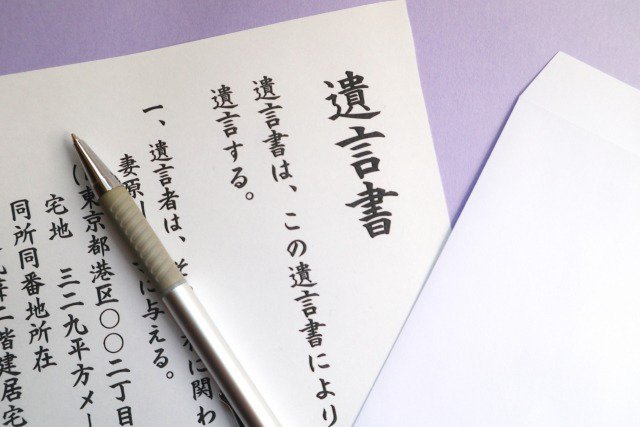 遺言書
遺言書は、この遺言書により
遺言する。
一、遺言者は、 に関わ
妻原 に与える。
東京都港区〇〇二丁目
宅地 三二九平方メー
同所同番地所在
二階建居宅